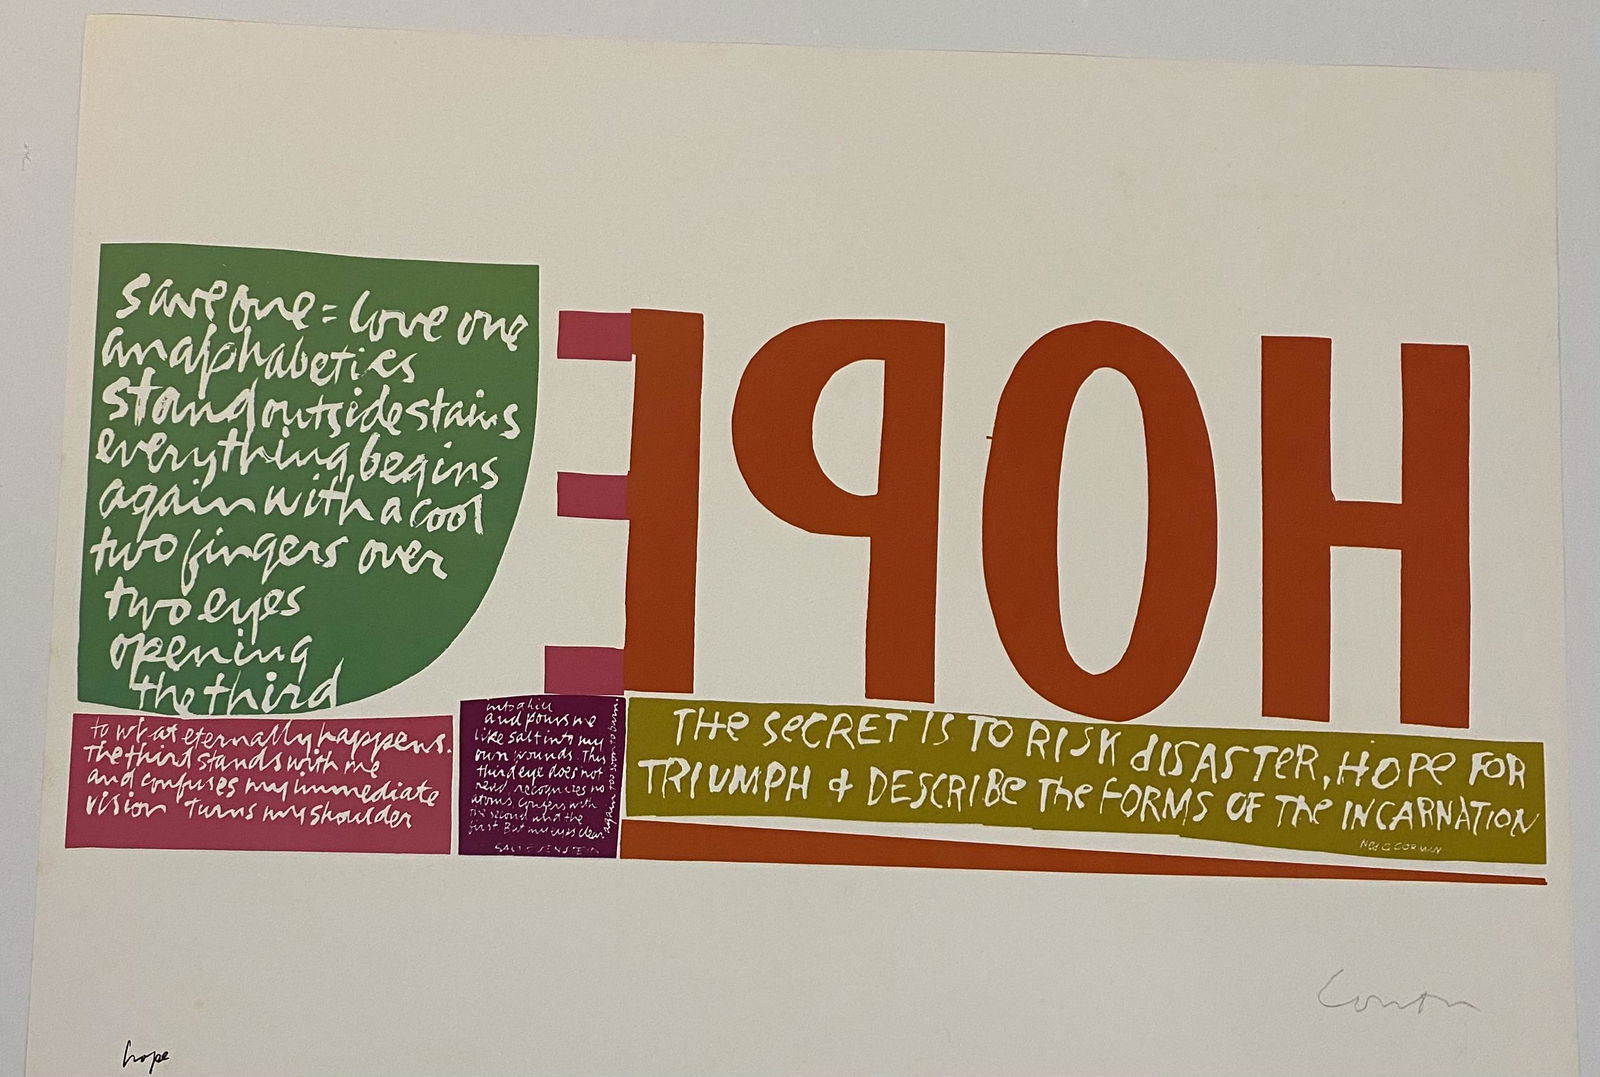 save one = love one
analphabetics
stand outside stains
everything begins
again with a cool
two fingers over
two eyes
opening
the third
to what eternally happens.
the third stands with me
and confuses my immediate
vision turns my shoulder
into a lieu
and pours me
like salt into my
own wounds. This
third eye does not
read recognizes no
atoms confers with
the second and the
first But my eyes clear
again too soon to burn.
HOPE
THE SECRET IS TO RISK dISASTER, HOPE FOR
TRIUMPH & DESCRIBE The FORMS OF THe INCARNATION
NED O GORMAN
hope